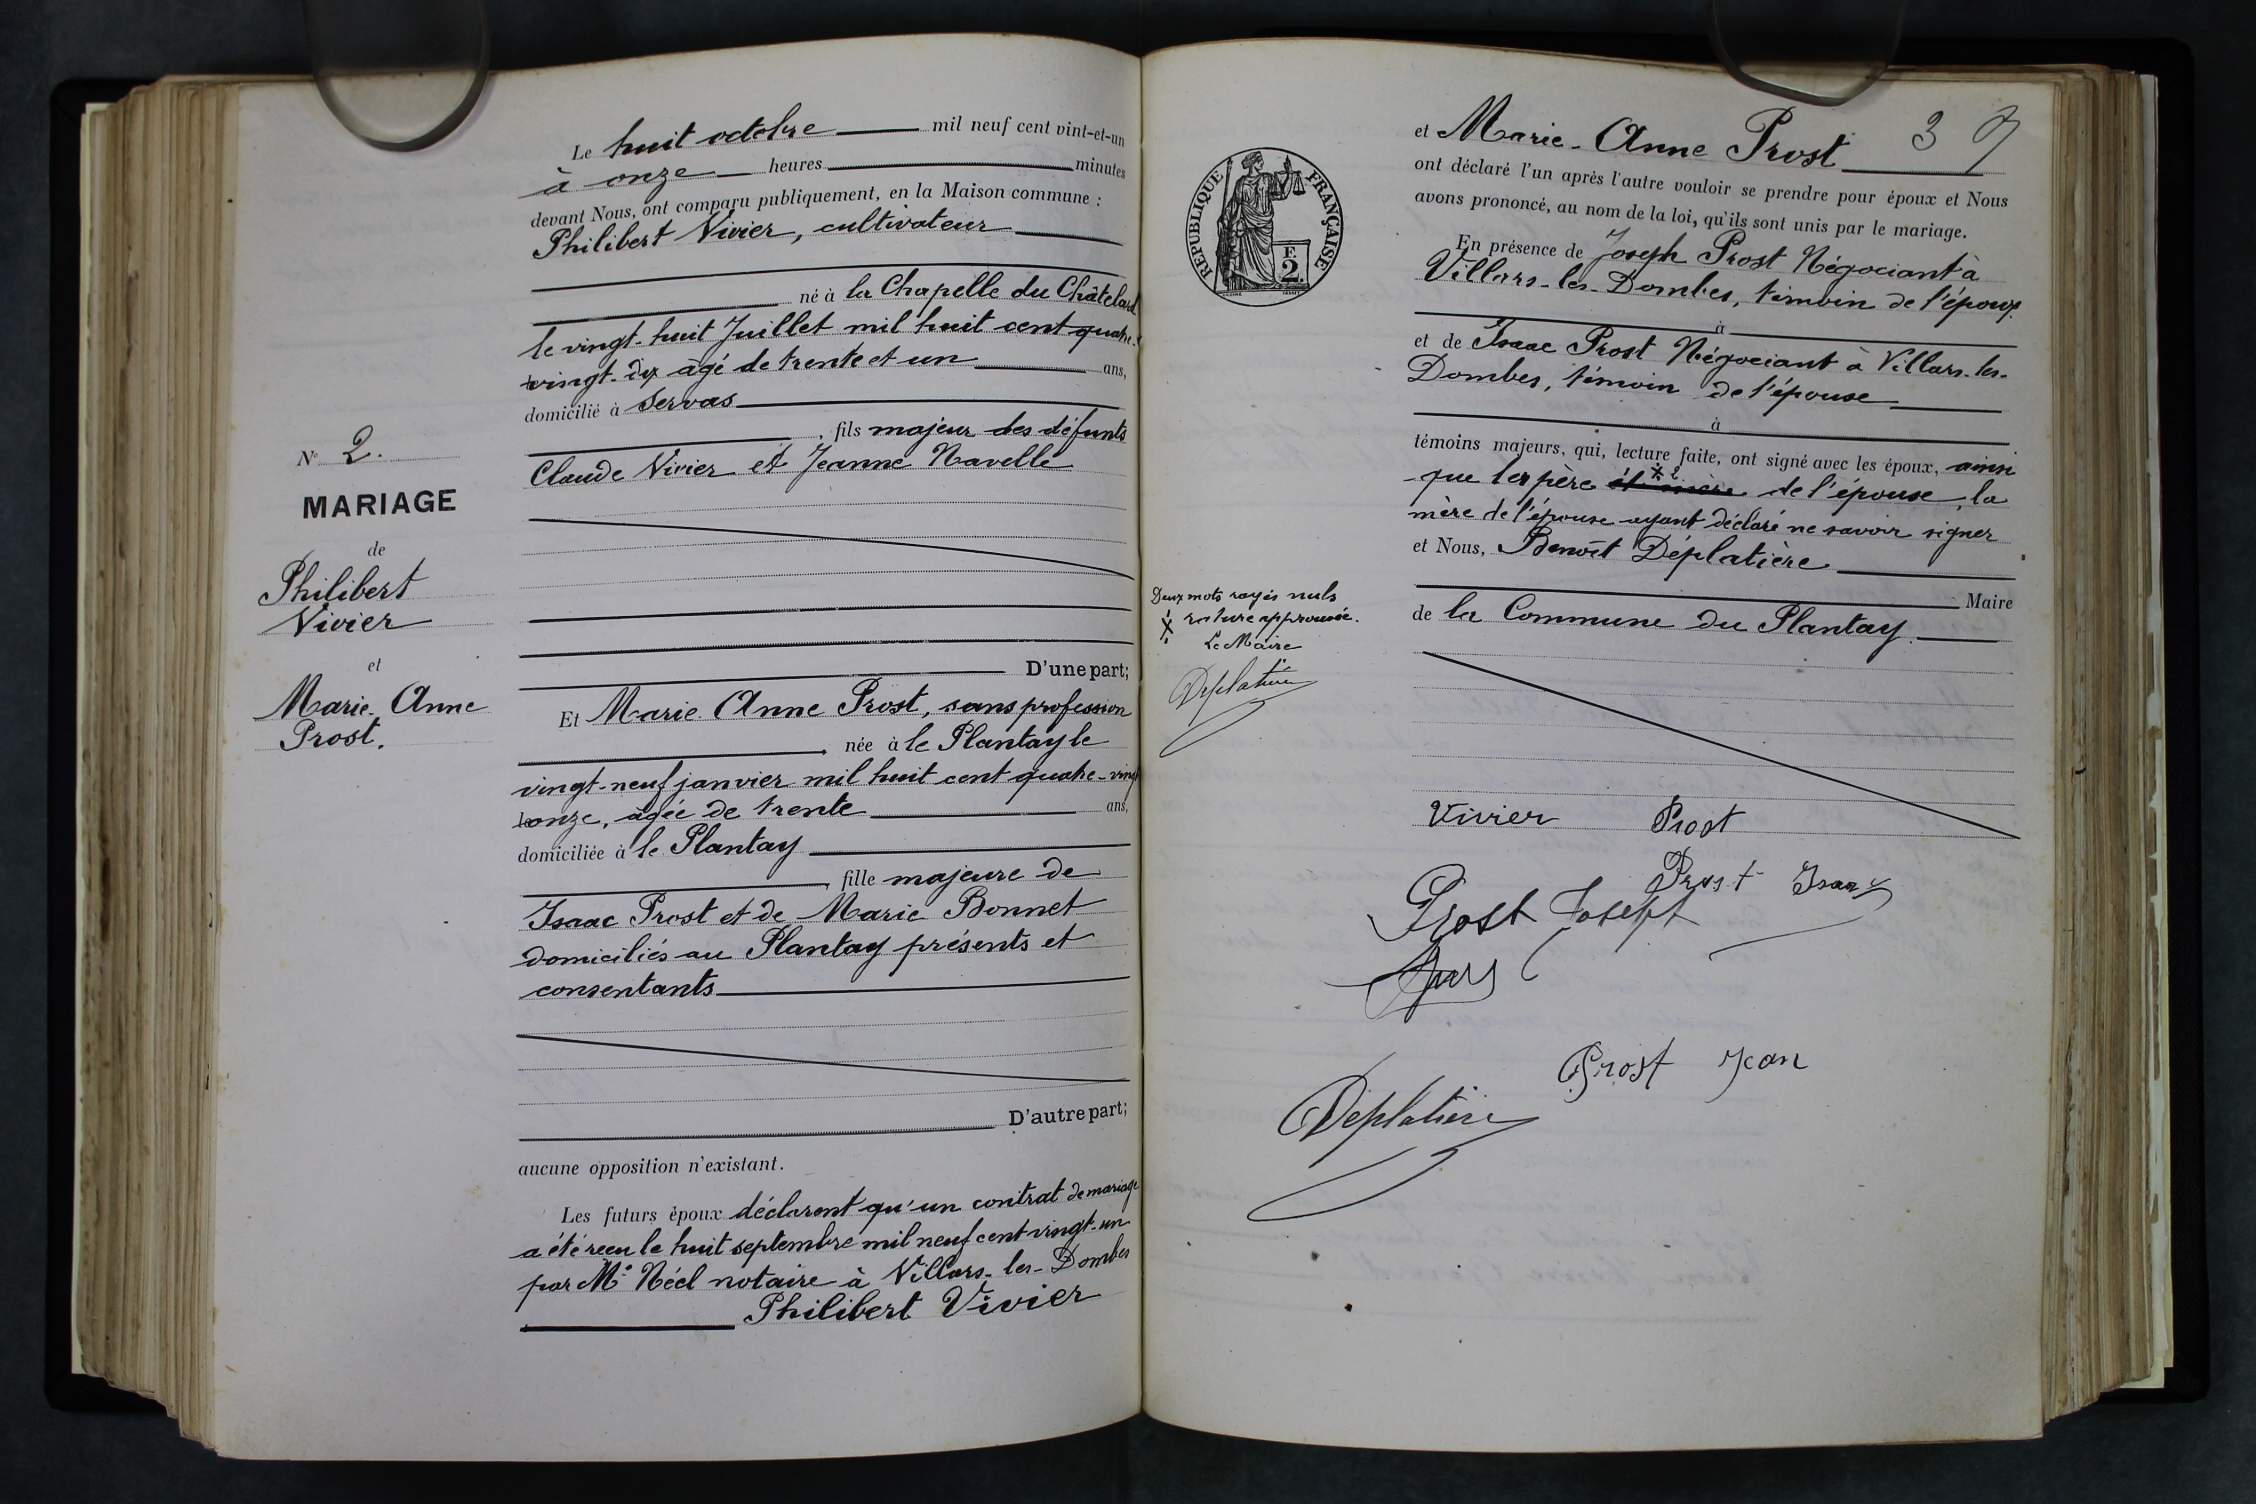 N° 2.
MARIAGE
de
Philibert
Vivier
et
Marie-Anne
Prost.
Le huit octobre mil neuf cent vint-et-un
à onze heures minutes
devant Nous, ont comparu publiquement, en la Maison commune :
Philibert Vivier, cultivateur
né à la Chapelle du Châtelard
le vingt-huit Juillet mil huit cent quatre-
vingt-dix âgé de trente et un ans,
domicilié à Servas
, fils majeur des défunts
Claude Vivier et Jeanne Navelle
D'une part;
Et Marie Anne Prost, sans profession
, née à le Plantay le
vingt-neuf janvier mil huit cent quatre-vingt
onze, âgée de trente ans,
domiciliée à le Plantay
, fille majeure de
Isaac Prost et de Marie Bonnet
domiciliés au Plantay présents et
consentants
D'autre part;
aucune opposition n'existant.
Les futurs époux déclarent qu'un contrat de mariage
a été reçu le huit septembre mil neuf cent vingt-un
par Me Néel notaire à Villars-les-Dombes
Philibert Vivier
3
et Marie-Anne Prost
ont déclaré l'un après l'autre vouloir se prendre pour époux et Nous
avons prononcé, au nom de la loi, qu'ils sont unis par le mariage.
RÉPUBLIQUE FRANÇAISE
2 F.
En présence de Joseph Prost Négociant à
Villars-les-Dombes, témoin de l'époux
à
et de Isaac Prost Négociant à Villars-les-
Dombes, témoin de l'épouse
à
témoins majeurs, qui, lecture faite, ont signé avec les époux, ainsi
que les père et mère de l'épouse, la
mère de l'épouse ayant déclaré ne savoir signer
et Nous, Benoît Déplatière
Maire
de la Commune du Plantay.
Deux mots rayés nuls
rature approuvée.
Le Maire
Déplatière
Vivier Prost
Prost Isaac
Prost Joseph
Prost Jean
Déplatière